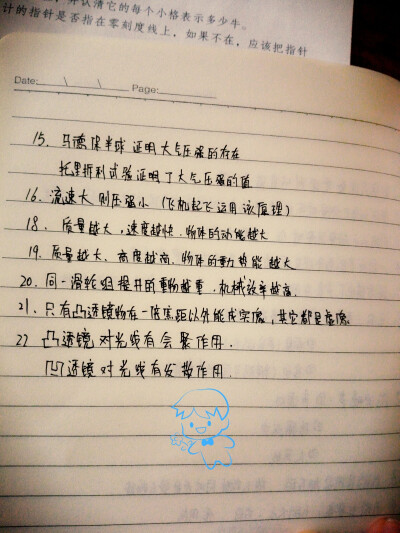 并认清它的每个小格表示多少牛。
计的指针是否指在零刻度线上，如果不在，应该把指针
Date: \ \ Page:
15. 马德保半球证明大气压强的存在
托里拆利试验证明了大气压强的值
16. 流速大则压强小（飞机起飞运用该原理）
18. 质量越大，速度越快.物体的动能越大
19. 质量越大、高度越高.物体的重力势能越大
20. 同一滑轮组提升的重物越重.机械效率越高.
21. 只有凸透镜物在一倍焦距以外能成实像，其它都是虚像
22 凸透镜对光线有会聚作用.
凹透镜对光线有发散作用.